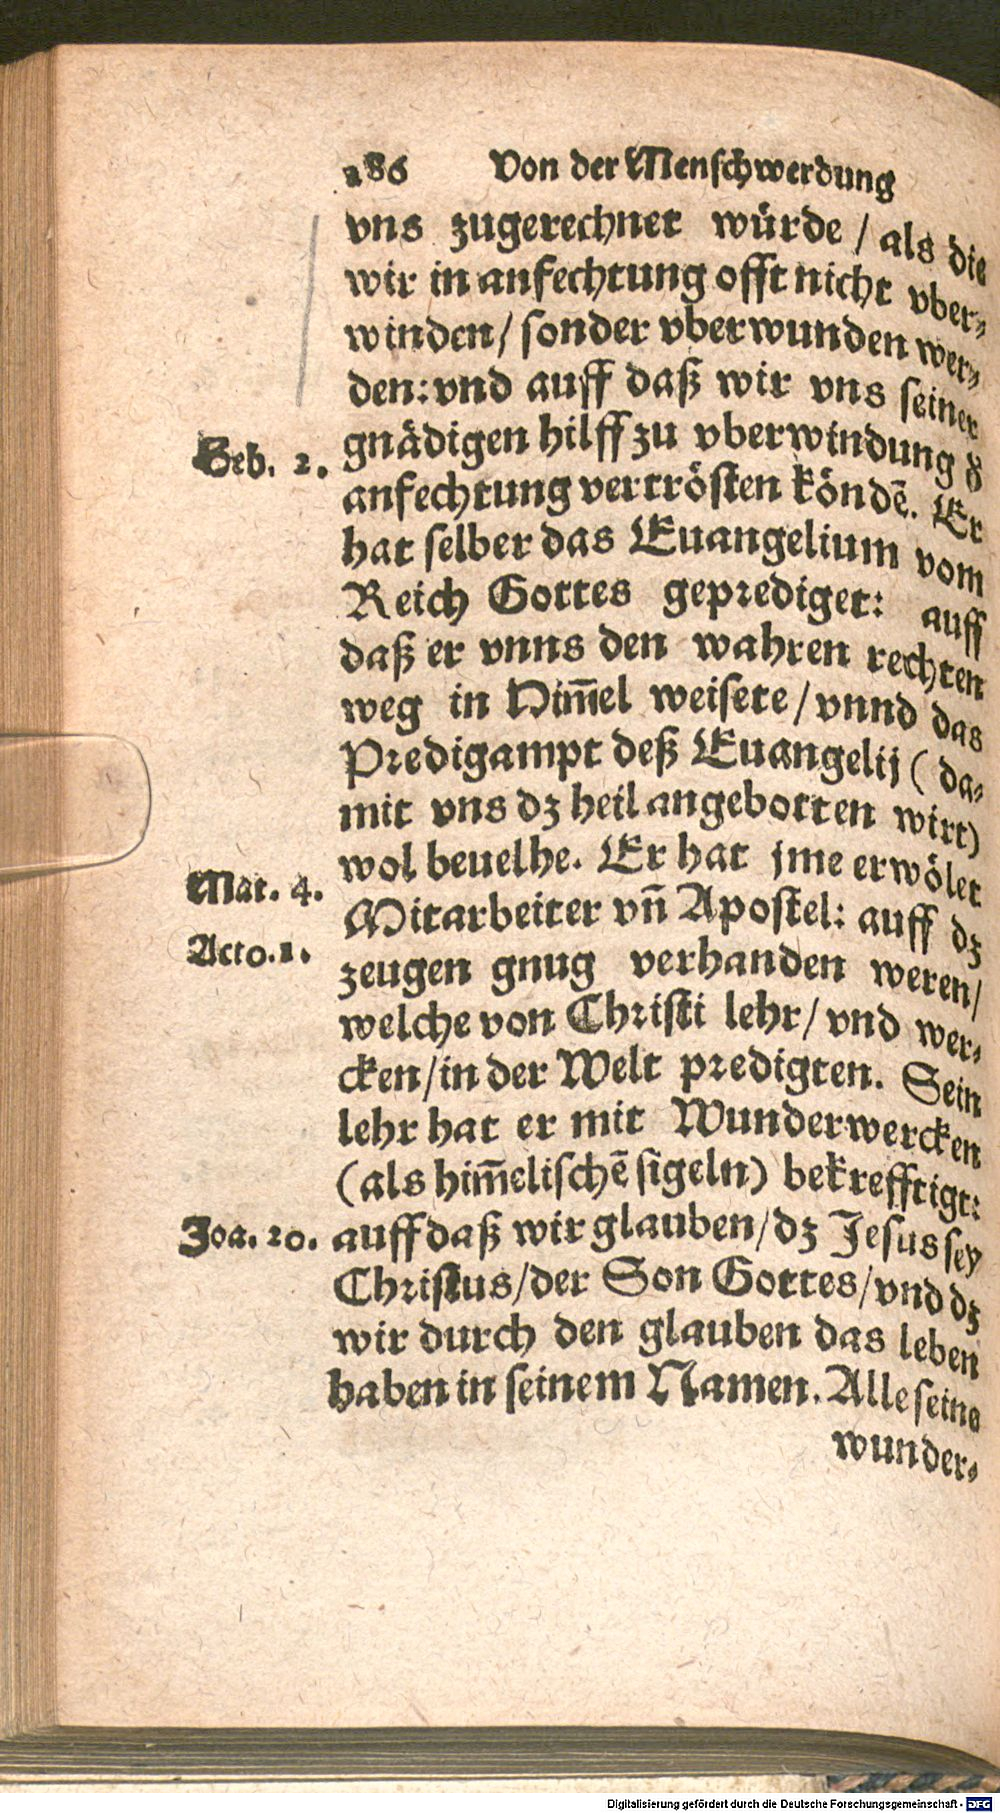 186 Von der Menschwerdung
vns zugerechnet würde / als die
wir in anfechtung offt nicht vber⸗
winden / sonder vberwunden wer⸗
den: vnd auff daß wir vns seiner
Heb. 2. gnädigen hilff zu vberwindung d
anfechtung vertrösten köndē. Er
hat selber das Euangelium vom
Reich Gottes geprediget: auff
daß er vnns den wahren rechten
weg in Him̄el weisete / vnnd das
Predigampt deß Euangelij (da⸗
mit vns dz heil angebotten wirt)
wol beuelhe. Er hat jme erwölet
Mat. 4. Mitarbeiter vn̄ Apostel: auff dz
Acto. 1. zeugen gnug verhanden weren /
welche von Christi lehr / vnd wer⸗
cken / in der Welt predigten. Sein
lehr hat er mit Wunderwercken
(als him̄elischē sigeln) bekrefftigt:
Joa. 20. auff daß wir glauben / dz Jesus sey
Christus / der Son Gottes / vnd dz
wir durch den glauben das leben
haben in seinem Namen. Alle seine
wunder⸗
Digitalisierung gefördert durch die Deutsche Forschungsgemeinschaft - DFG